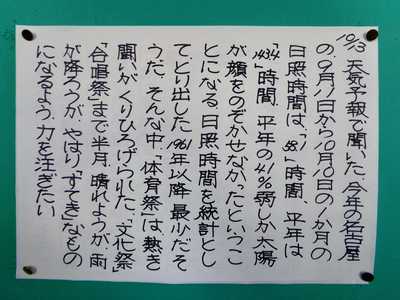 10/13 天気予報で聞いた。今年の名古屋
の、9月11日から10月10日の1か月の
日照時間は、「58.1」時間、平年は
「143.4」時間、平年の41%弱しか太陽
が顔をのぞかせなかったというこ
とになる。日照時間を統計とし
てとり出した1961年以降最少だそ
うだ。そんな中、「体育祭」は熱き
闘いがくりひろげられた。「文化祭」
「合唱祭」まで半月、晴れようが、雨
が降ろうが、やはり「すてき」なもの
になるよう、力を注ぎたい